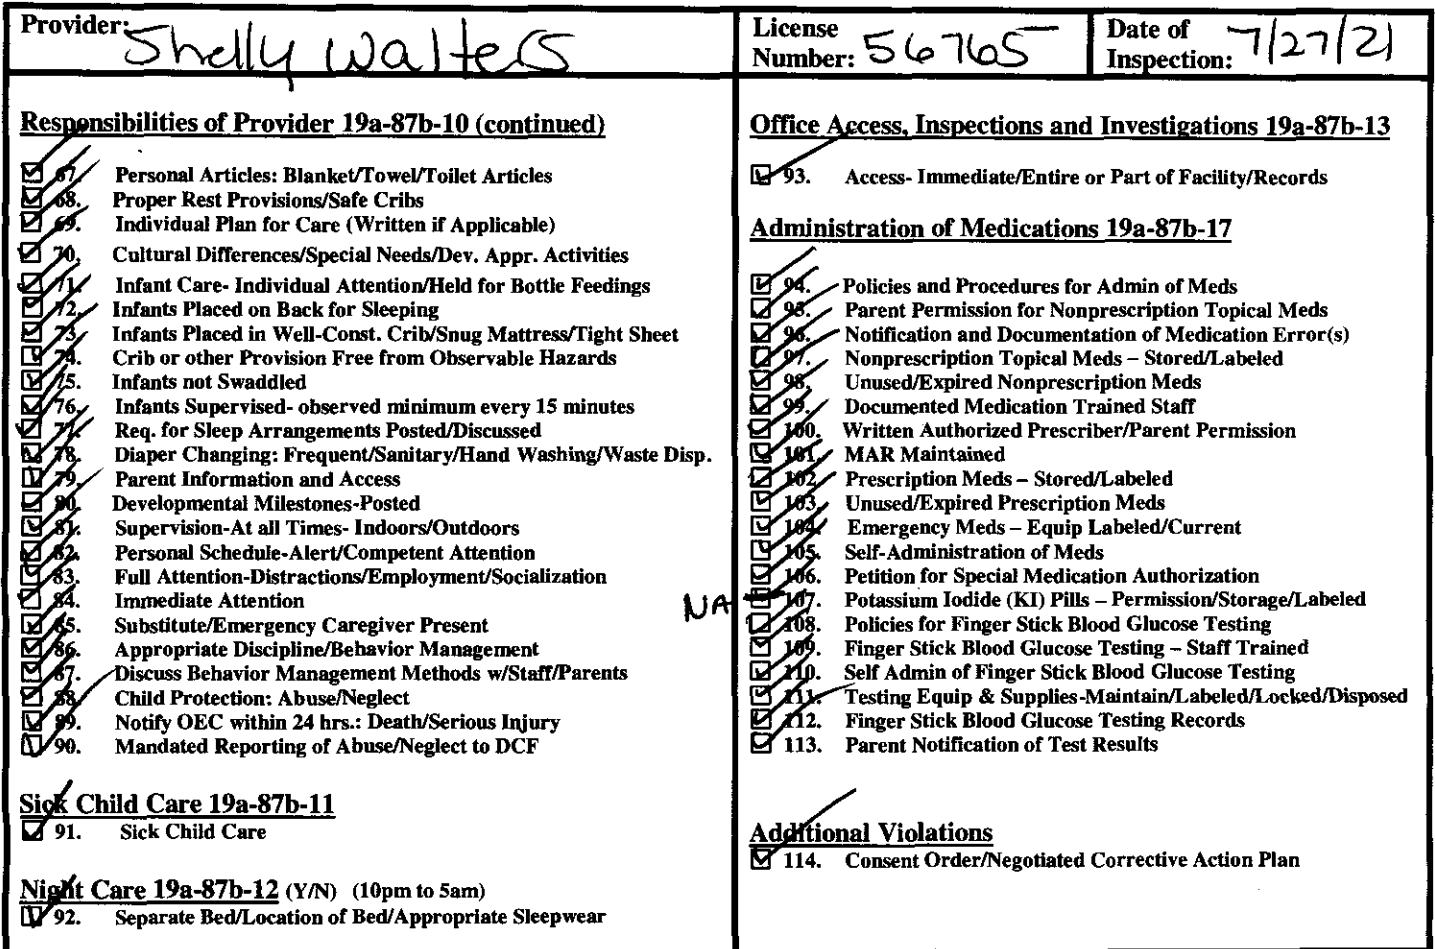 Provider: Shelly Walters
License Number: 56765
Date of Inspection: 7/27/21
Responsibilities of Provider 19a-87b-10 (continued)
67. Personal Articles: Blanket/Towel/Toilet Articles
68. Proper Rest Provisions/Safe Cribs
69. Individual Plan for Care (Written if Applicable)
70. Cultural Differences/Special Needs/Dev. Appr. Activities
71. Infant Care- Individual Attention/Held for Bottle Feedings
72. Infants Placed on Back for Sleeping
73. Infants Placed in Well-Const. Crib/Snug Mattress/Tight Sheet
74. Crib or other Provision Free from Observable Hazards
75. Infants not Swaddled
76. Infants Supervised- observed minimum every 15 minutes
77. Req. for Sleep Arrangements Posted/Discussed
78. Diaper Changing: Frequent/Sanitary/Hand Washing/Waste Disp.
79. Parent Information and Access
80. Developmental Milestones-Posted
81. Supervision-At all Times- Indoors/Outdoors
82. Personal Schedule-Alert/Competent Attention
83. Full Attention-Distractions/Employment/Socialization
84. Immediate Attention
85. Substitute/Emergency Caregiver Present
86. Appropriate Discipline/Behavior Management
87. Discuss Behavior Management Methods w/Staff/Parents
88. Child Protection: Abuse/Neglect
89. Notify OEC within 24 hrs.: Death/Serious Injury
90. Mandated Reporting of Abuse/Neglect to DCF
Sick Child Care 19a-87b-11
91. Sick Child Care
Night Care 19a-87b-12 (Y/N) (10pm to 5am)
92. Separate Bed/Location of Bed/Appropriate Sleepwear
Office Access, Inspections and Investigations 19a-87b-13
93. Access- Immediate/Entire or Part of Facility/Records
Administration of Medications 19a-87b-17
94. Policies and Procedures for Admin of Meds
95. Parent Permission for Nonprescription Topical Meds
96. Notification and Documentation of Medication Error(s)
97. Nonprescription Topical Meds – Stored/Labeled
98. Unused/Expired Nonprescription Meds
99. Documented Medication Trained Staff
100. Written Authorized Prescriber/Parent Permission
101. MAR Maintained
102. Prescription Meds – Stored/Labeled
103. Unused/Expired Prescription Meds
104. Emergency Meds – Equip Labeled/Current
105. Self-Administration of Meds
106. Petition for Special Medication Authorization
NA 107. Potassium Iodide (KI) Pills – Permission/Storage/Labeled
108. Policies for Finger Stick Blood Glucose Testing
109. Finger Stick Blood Glucose Testing – Staff Trained
110. Self Admin of Finger Stick Blood Glucose Testing
111. Testing Equip & Supplies-Maintain/Labeled/Locked/Disposed
112. Finger Stick Blood Glucose Testing Records
113. Parent Notification of Test Results
Additional Violations
114. Consent Order/Negotiated Corrective Action Plan